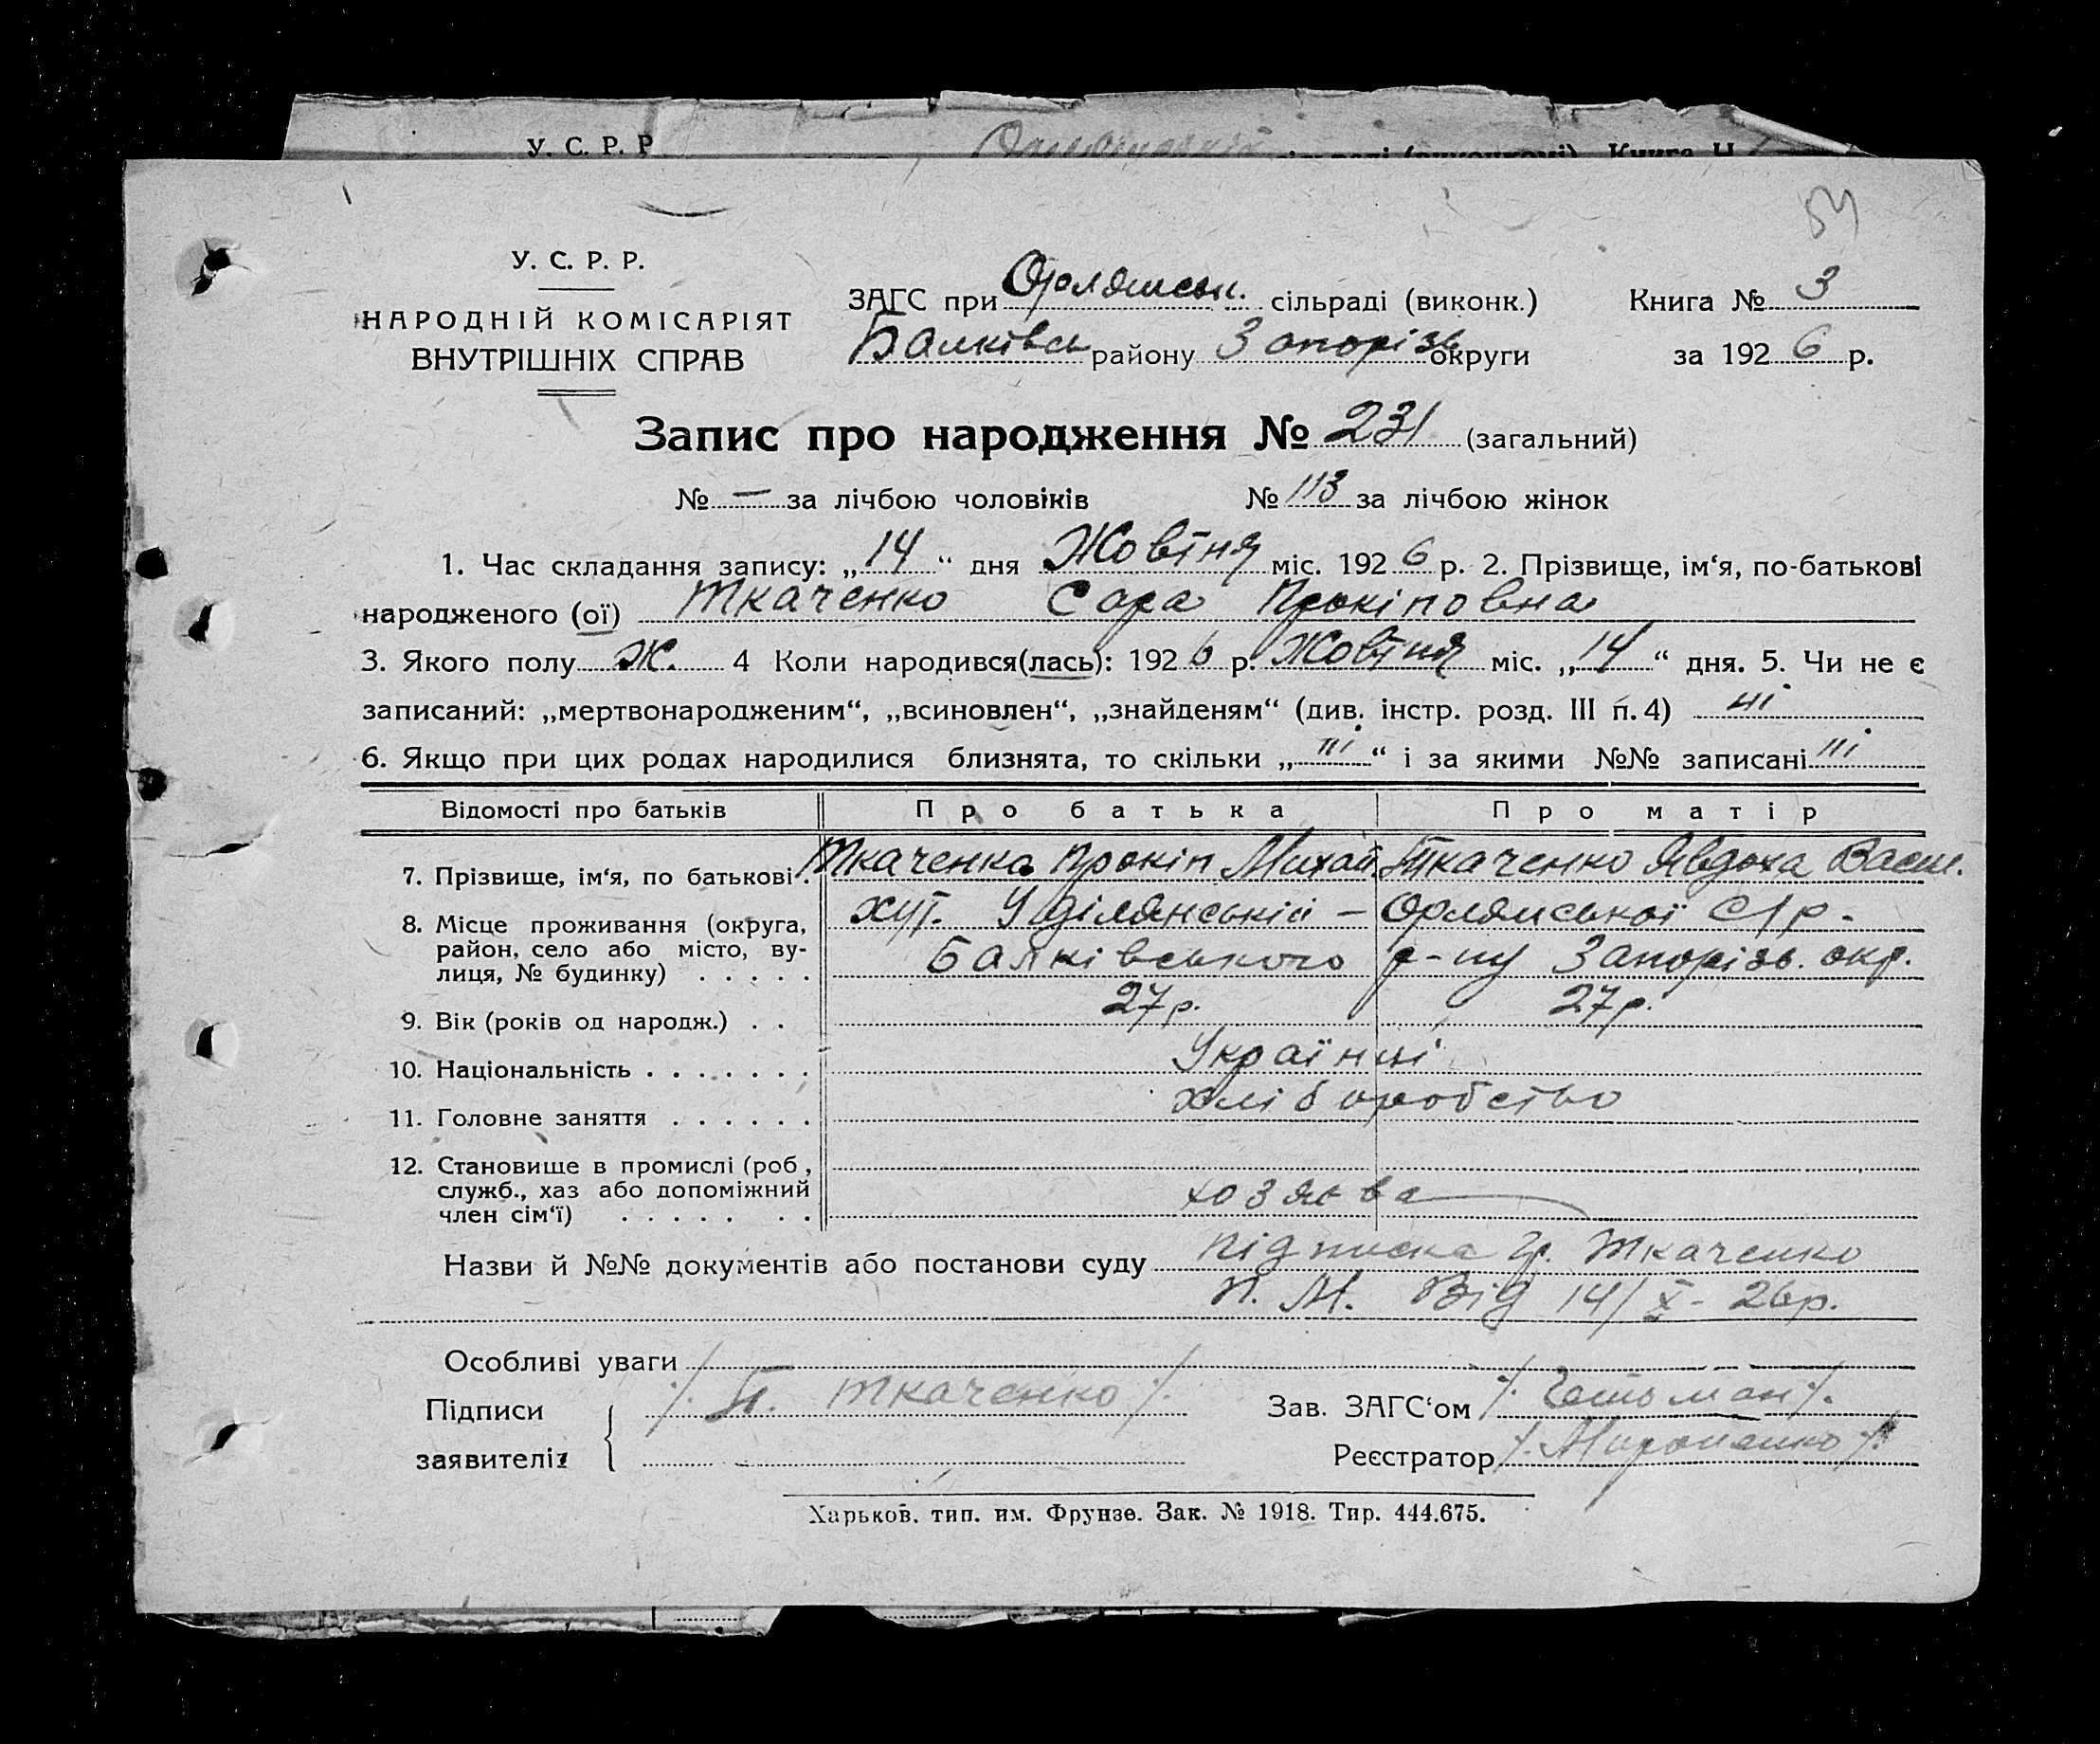 У. С. Р. Р
54
У. С. Р. Р.
НАРОДНІЙ КОМІСАРІЯТ
ВНУТРІШНІХ СПРАВ
ЗАГС при Орлянськ. сільраді (виконк.) Книга № 3
Балківськ району Запорізьк округи за 1926 р.
Запис про народження № 231 (загальний)
№ — за лічбою чоловіків № 113 за лічбою жінок
1. Час складання запису: „14“ дня Жовтня міс. 1926 р. 2. Прізвище, ім‘я, по-батькові
народженого (ої) Ткаченко Сара Прокіповна
3. Якого полу Ж. 4 Коли народився(лась): 1926 р. Жовтня міс. „14“ дня. 5. Чи не є
записаний: „мертвонародженим“, „всиновлен“, „знайденям“ (див. інстр. розд. III п. 4) ні
6. Якщо при цих родах народилися близнята, то скільки „ні“ і за якими №№ записані ні
Відомості про батьків Про батька Про матір
7. Прізвище, ім‘я, по батькові . Ткаченко Прокіп Михай. Ткаченко Явдоха Васил.
8. Місце проживання (округа, хут. Уділянській – Орлянської с/р.
район, село або місто, ву- Балківського р-ну Запорізь. окр.
лиця, № будинку) . . . . .
9. Вік (років од народж.) . . 27 р. 27 р.
10. Національність . . . . . . . Українці
11. Головне заняття . . . . . . хліборобство
12. Становище в промислі (роб,
служб., хаз або допоміжний хозяева
член сім‘ї) . . . . . . .
Назви й №№ документів або постанови суду підписка гр. Ткаченко
П. М. Від 14/X - 26р.
Особливі уваги
Підписи /. П. Ткаченко ./ Зав. ЗАГС‘ом /. Гетьман /.
заявителів Реєстратор /. Мироненко /.
Харьков. тип. им. Фрунзе. Зак. № 1918. Тир. 444.675.